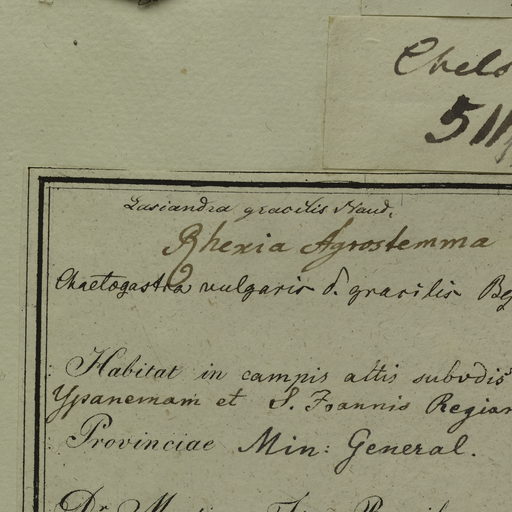 Chels
511
Lasiandra gracilis Naud.
Rhexia Agrostemma
Chaetogastra vulgaris δ. gracilis
Habitat in campis altis subudis
Ypanemam et S. Joannis Regian
Provinciae Min: General.
Dr.